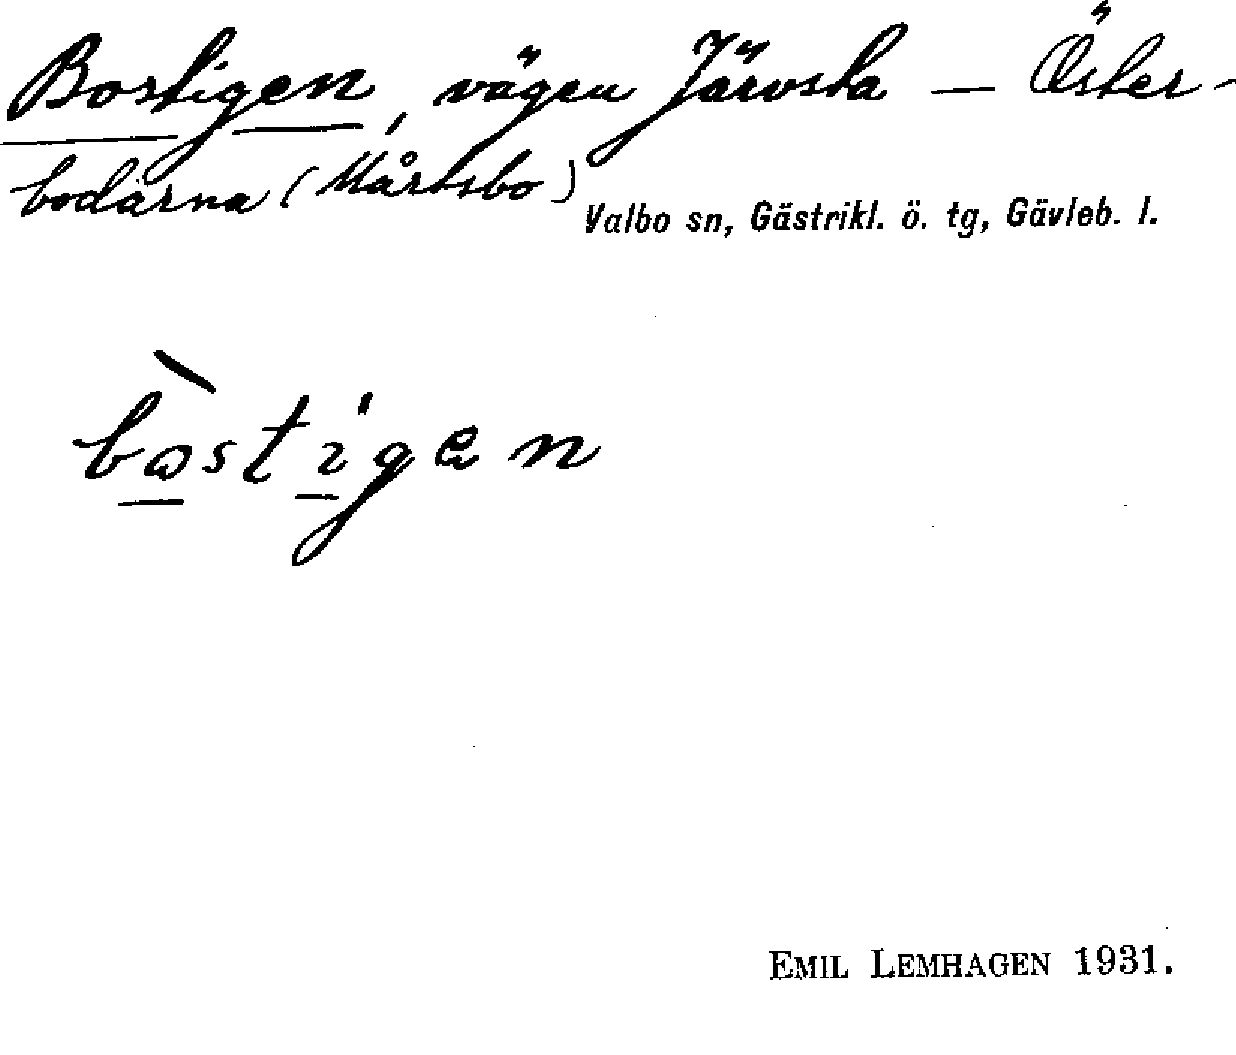 Bostigen, vägen Järvsta — Öster-
bodarna (Mårtsbo)
Valbo sn, Gästrikl. ö. tg, Gävleb. l.
bo̠sti̠gen
EMIL LEMHAGEN 1931.